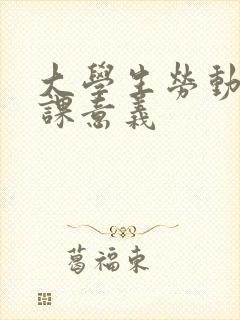 大學生勞動
課意義
葛福東